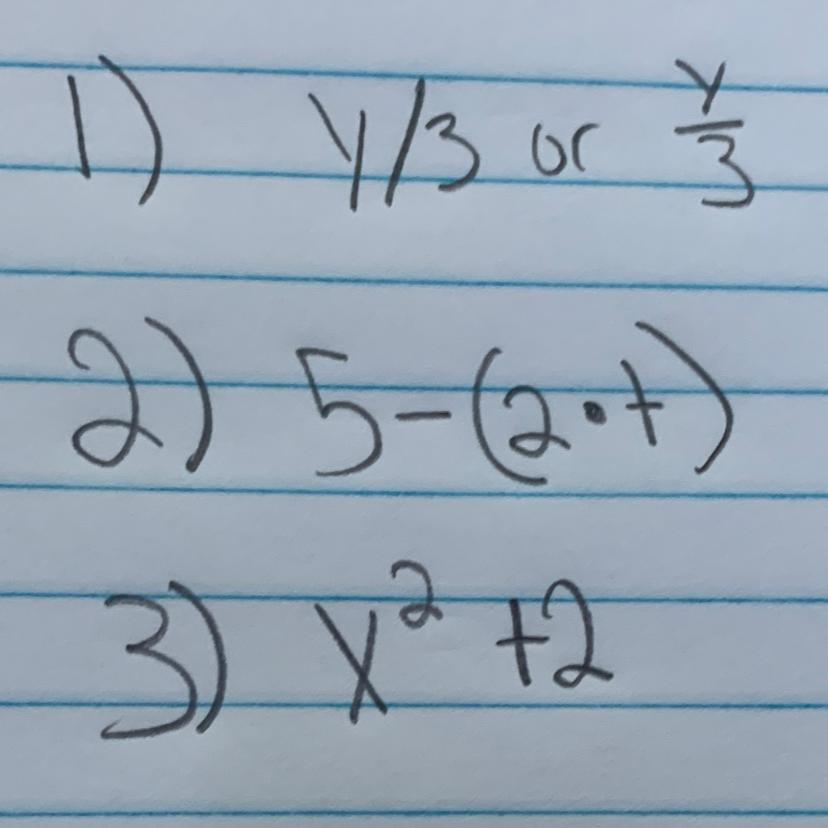 1) y/3 or y/3
2) 5-(2·t)
3) x² +2